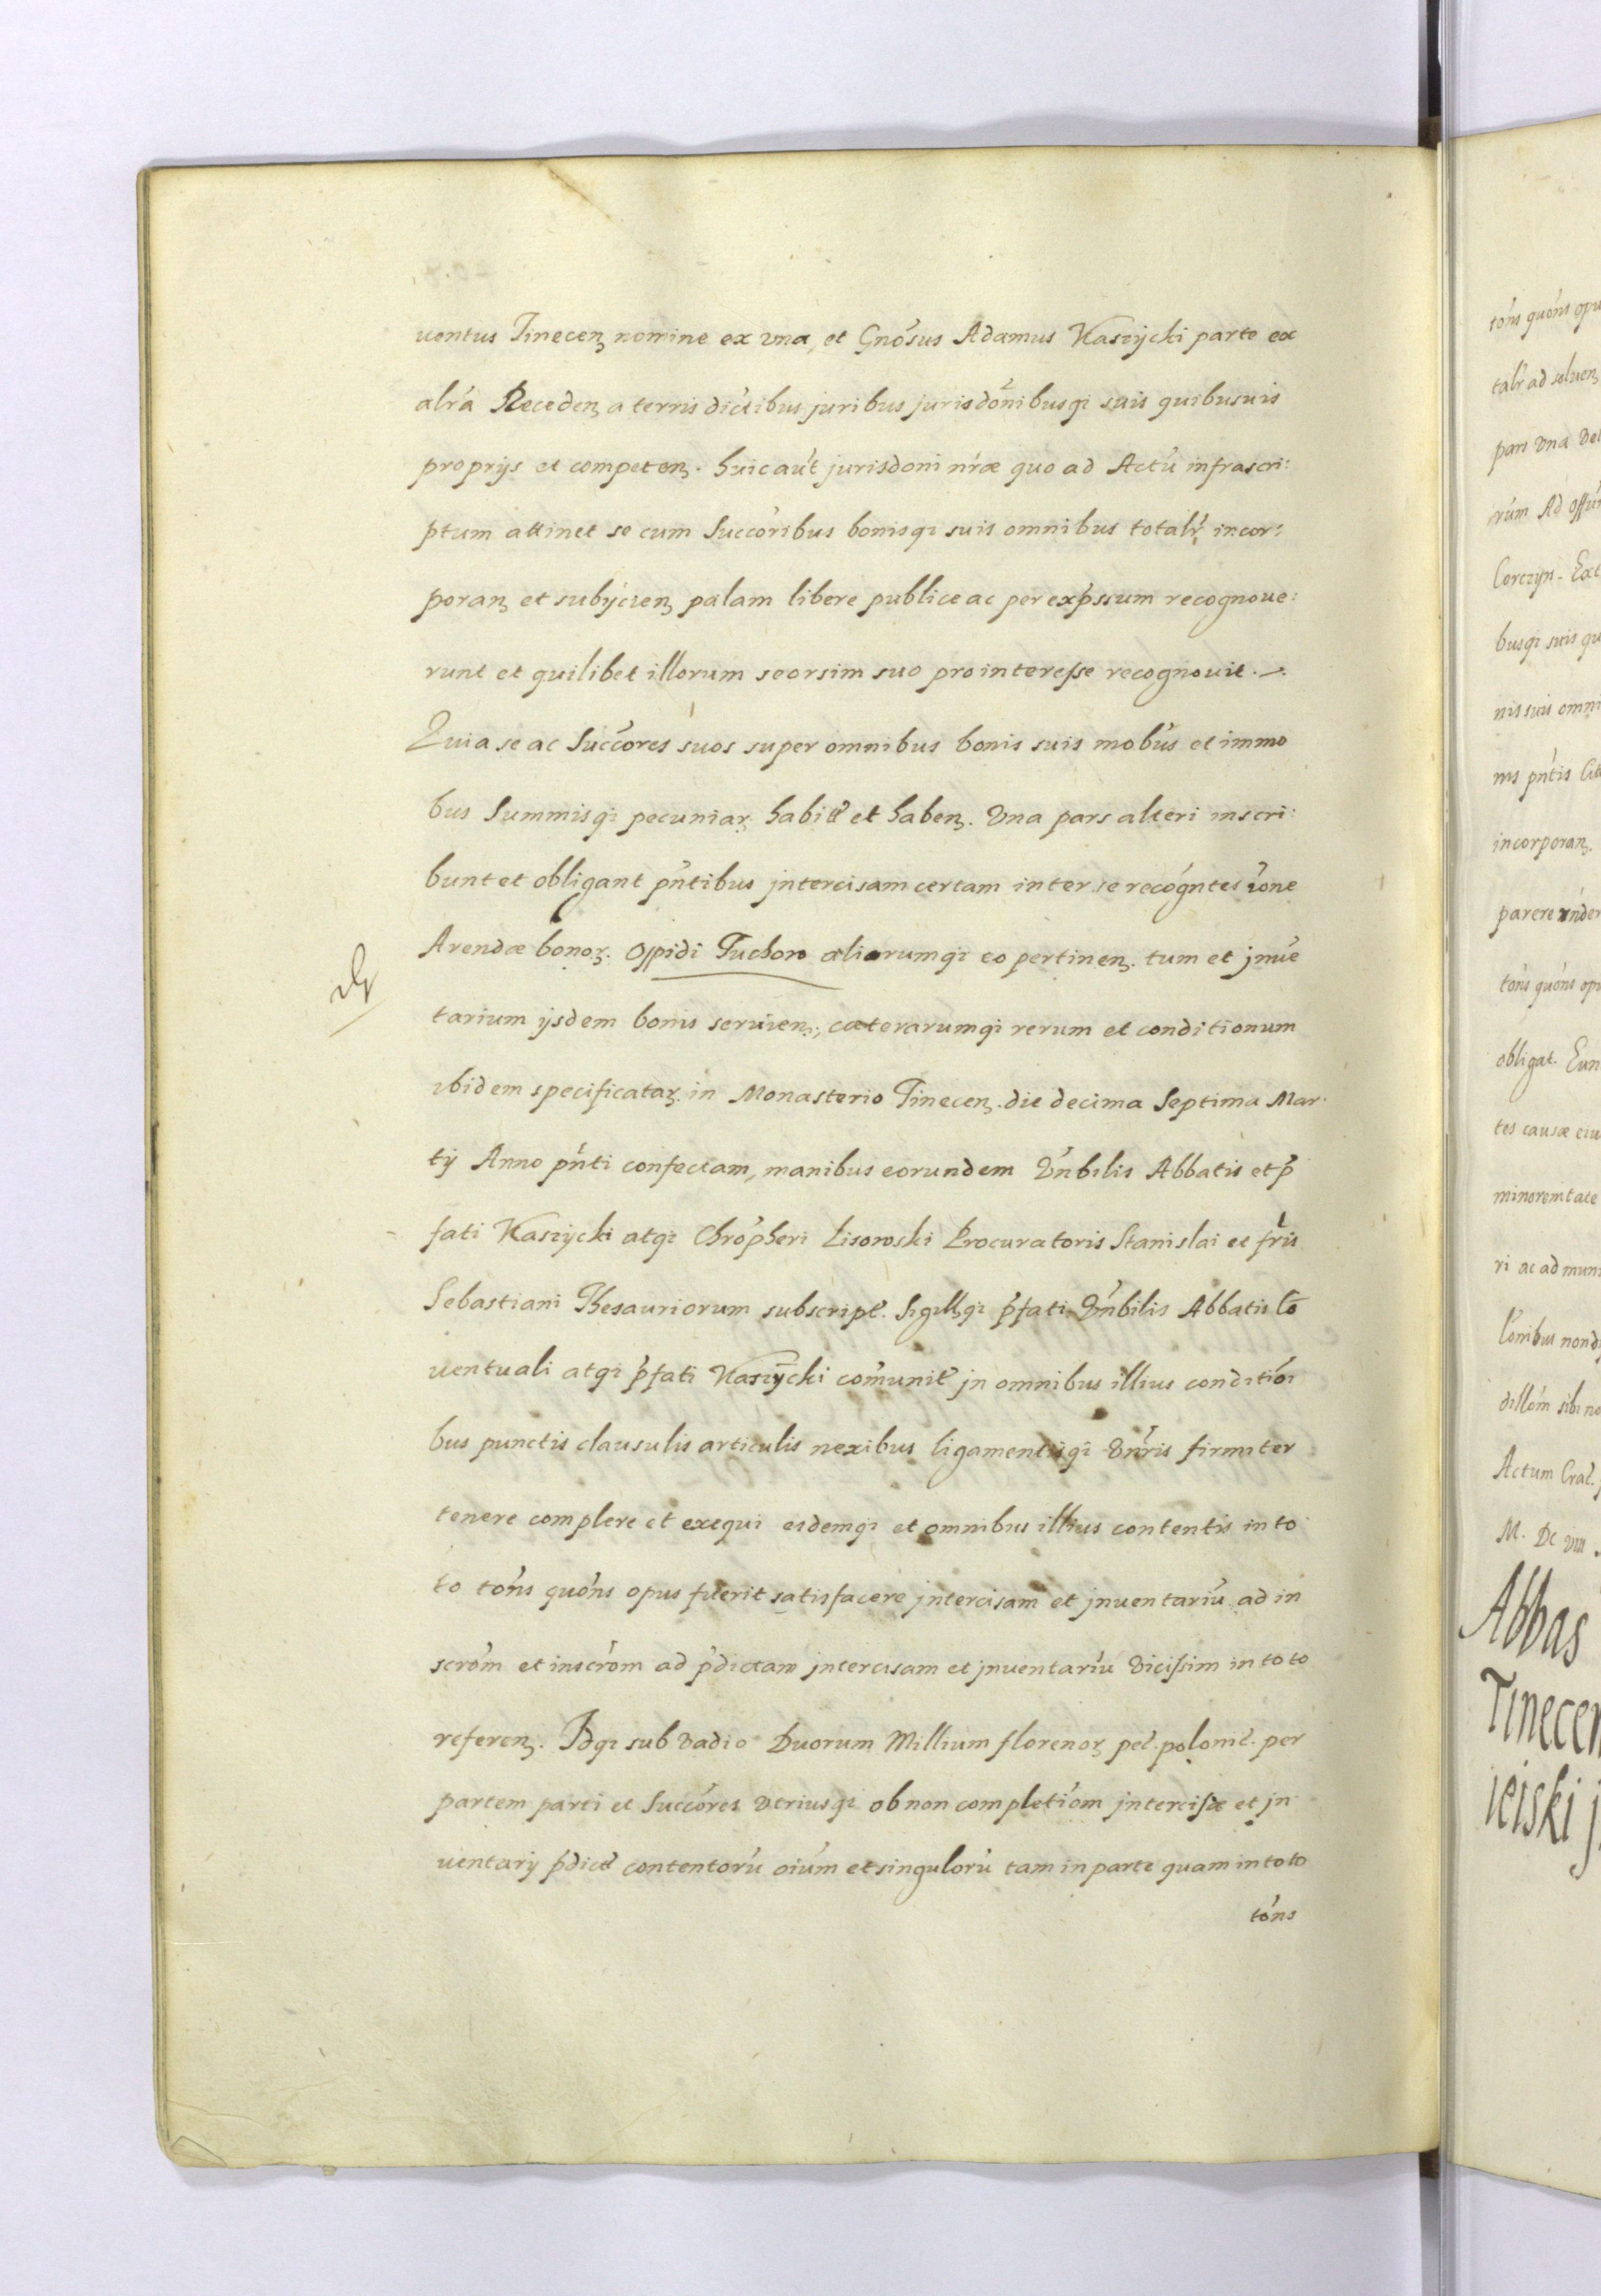 uentus Tinecenꝫ nomine ex vna, et Gnósus Adamus Kaszÿcki parte ex
alrá Recedenꝫ a terris dictibus juribus jurisdónibusqȝ suis quibusuis
proprijs et competenꝫ. huic aút jurisdoni nrǽ quo ad Actú infrascri:
ptum attinet se cum Succóribus bonisqȝ suis omnibus totalr incor:
poranꝫ et subÿcienꝫ palam libere publice ac per expssum recognoue:
runt et quilibet illorum seorsim suo pro interesse recognouit.
Quia se ac Succóres suos super omnibus bonis suis mobús et immo
bus Summisqȝ pecuniarꝫ habit et habenꝫ. Vna pars alteri inscri:
bunt et obligant pńtibus jntercisam certam inter se recógntes róne
Arendæ bonoꝫ. Oppidi Tuchow aliarumqȝ eo pertinenꝫ. tum et jnúe
tarium ijsdem bonis seruienꝫ, cæterarumqȝ rerum et conditionum
ibidem specificataꝫ. in Monasterio Tinecenꝫ. die decima Septima Mar
tij Anno pńti confectam, manibus eorundem Vńbilis Abbatis et p̃
fati Kaszycki atqȝ Chrópheri Lisowski Procuratoris Stanislai et fris
Sebastiani Thesauriorum subscript. Sigillqȝ p̃fati Vńbilis Abbatis Cō
uentuali atqȝ p̃fati Kaszÿcki cómunit jn omnibus illius conditiói
bus punctis clausulis articulis nexibus ligamentisqȝ Vnŕis firmiter
tenere complere et exequi eidemqȝ et omnibus illius contentis in to
to tóns quóns opus fuerit satisfacere jntercisam et jnuentariú ad in
scróm et inscróm ad p̃dictam jntercisam et jnuentariú vicissim in toto
referenꝫ. Idqȝ sub vadio Duorum Millium florenoꝫ pec. polonic. per
partem parti et Succóres vtriusqȝ ob non completióm jntercisæ et jn
uentarij p̃dict contentorú oium et singulorú tam in parte quam in toto
tóns
tóns quóns opu
talr ad soluenꝫ
pars vna
rum Ad Offi
Corczyn. Ext
busqȝ suis qu
nis suis omni
nis pńtis
incorporanꝫ.
parere
tóns quóns op
obligat. Eun
tes causæ eiu
minorem
ri ac ad mun
nond
sibi no
Actum Crac.
M. DC VIII
Abbas
Tinecen
ieiski j